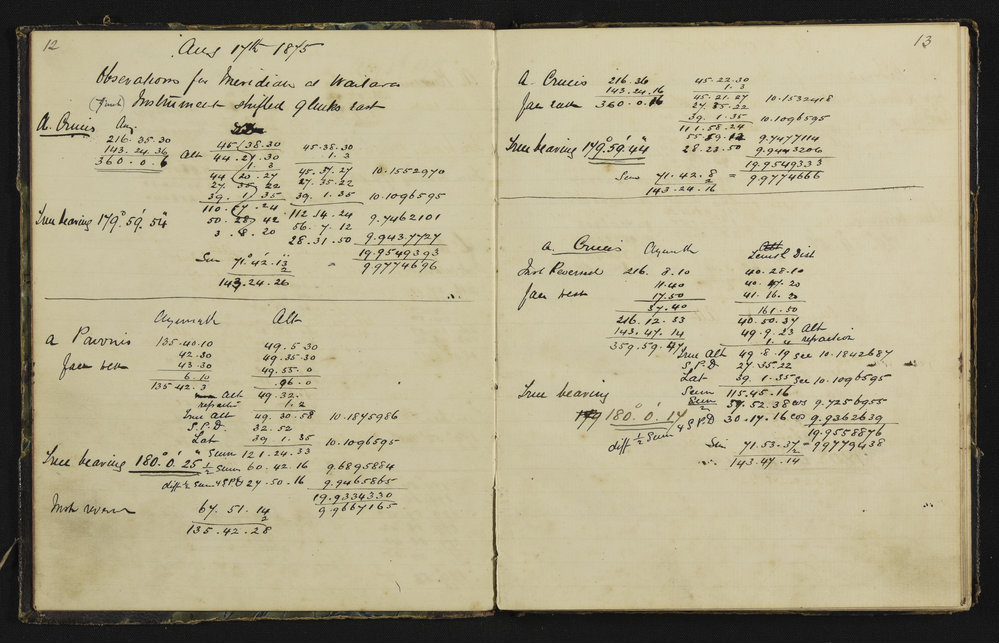 12
Aug 17th 1875
Observations for Meridian at Waitara
Instrument shifted 9 links east
A. Crucis
216.35.30
143.24.36
360.0.6
Alt
45.38.30
44.27.30
1.3
45.38.30
1.3
45.37.27
27.35.22
39.1.35
112.14.24
56.7.12
28.31.50
10.1552970
10.1096595
9.7462101
9.9437727
19.9549393
9.9774696
110.57.24
50.28.42
3.8.20
True bearing 179°.59'.54"
Sin 71°.42'.13"
2
143.24.26
Azymuth Alt
a Pavonis 135.40.10 49.5.30
42.30 49.35.30
Face west 43.30 49.55.0
6.10 .96.0
135.42.3 Alt 49.32.
refraction 1.2
True Alt 49.30.58 10.1875986
S.P.D. 32.52
Lat 39.1.35 10.1096595
Sum 121.24.33
True bearing 180°.0'.25" ½ Sum 60.42.16 9.6895884
diff ½ Sum & SPD 27.50.16 9.9465865
19.9334330
Inst revers 67.51.14 9.9667165
2
135.42.28
13
A. Crucis 216.36 45.22.30
143.24.16 1.3
Face east 360.0.16 45.21.27 10.1532418
27.35.22
39.1.35 10.1096595
111.58.24
55.59.12 9.7477114
True bearing 179°.59'.44" 28.23.50 9.9443206
19.9549333
Sin 71.42.8 = 9.9774666
2
143.24.16
a. Crucis Azymuth Zenith Dist
Inst Reversed 216.8.10 40.28.10
11.40 40.47.20
Face west 17.50 41.16.20
37.40 161.50
216.12.33 40.50.37
143.47.14 49.9.23 Alt
359.59.47 1.4 refraction
True Alt 49.8.19 sec 10.1842687
S.P.D 27.35.22
Lat 39.1.35 sec 10.1096595
True bearing Sum 115.45.16
Sum/2 57.52.38 cos 9.7256955
180°.0.14 diff ½ Sum & SPD 30.17.16 cos 9.9362639
19.9558876
Sin 71.53.37 = 9.9779438
2
143.47.14